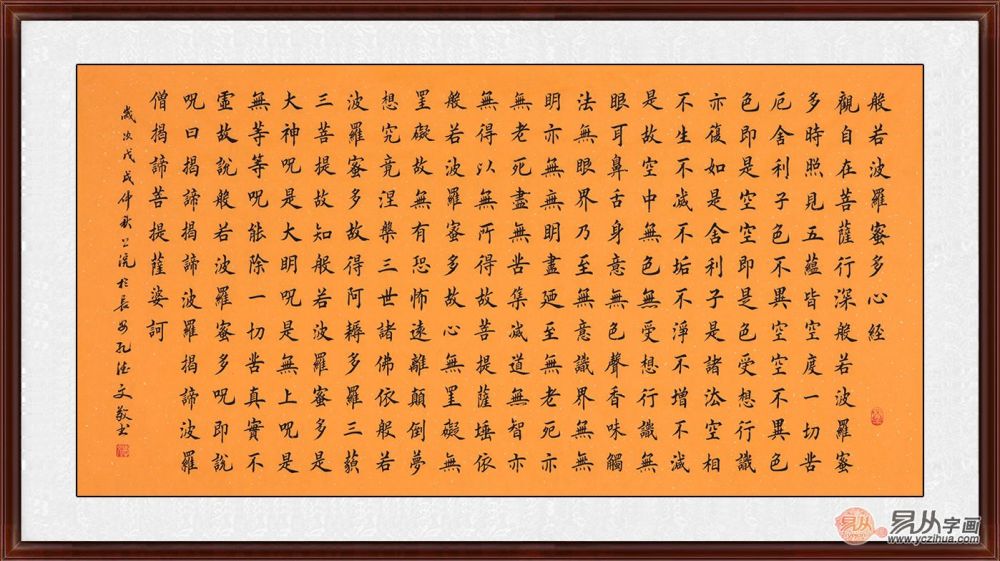 般若波羅蜜多心経
觀自在菩薩行深般若波羅蜜
多時照見五蘊皆空度一切苦
厄舍利子色不異空空不異色
色即是空空即是色受想行識
亦復如是舍利子是諸法空相
不生不滅不垢不淨不增不減
是故空中無色無受想行識無
眼耳鼻舌身意無色聲香味觸
法無眼界乃至無意識界無無
明亦無無明盡廼至無老死亦
無老死盡無苦集滅道無智亦
無得以無所得故菩提薩埵依
般若波羅蜜多故心無罣礙無
罣礙故無有恐怖遠離顛倒夢
想究竟涅槃三世諸佛依般若
波羅蜜多故得阿耨多羅三藐
三菩提故知般若波羅蜜多是
大神呪是大明呪是無上呪是
無等等呪能除一切苦真實不
虛故說般若波羅蜜多呪即說
呪曰揭諦揭諦波羅揭諦波羅
僧揭諦菩提薩婆訶
歲次戊戌仲秋上浣於長安孔德文敬書
易从字画
www.yczihua.com